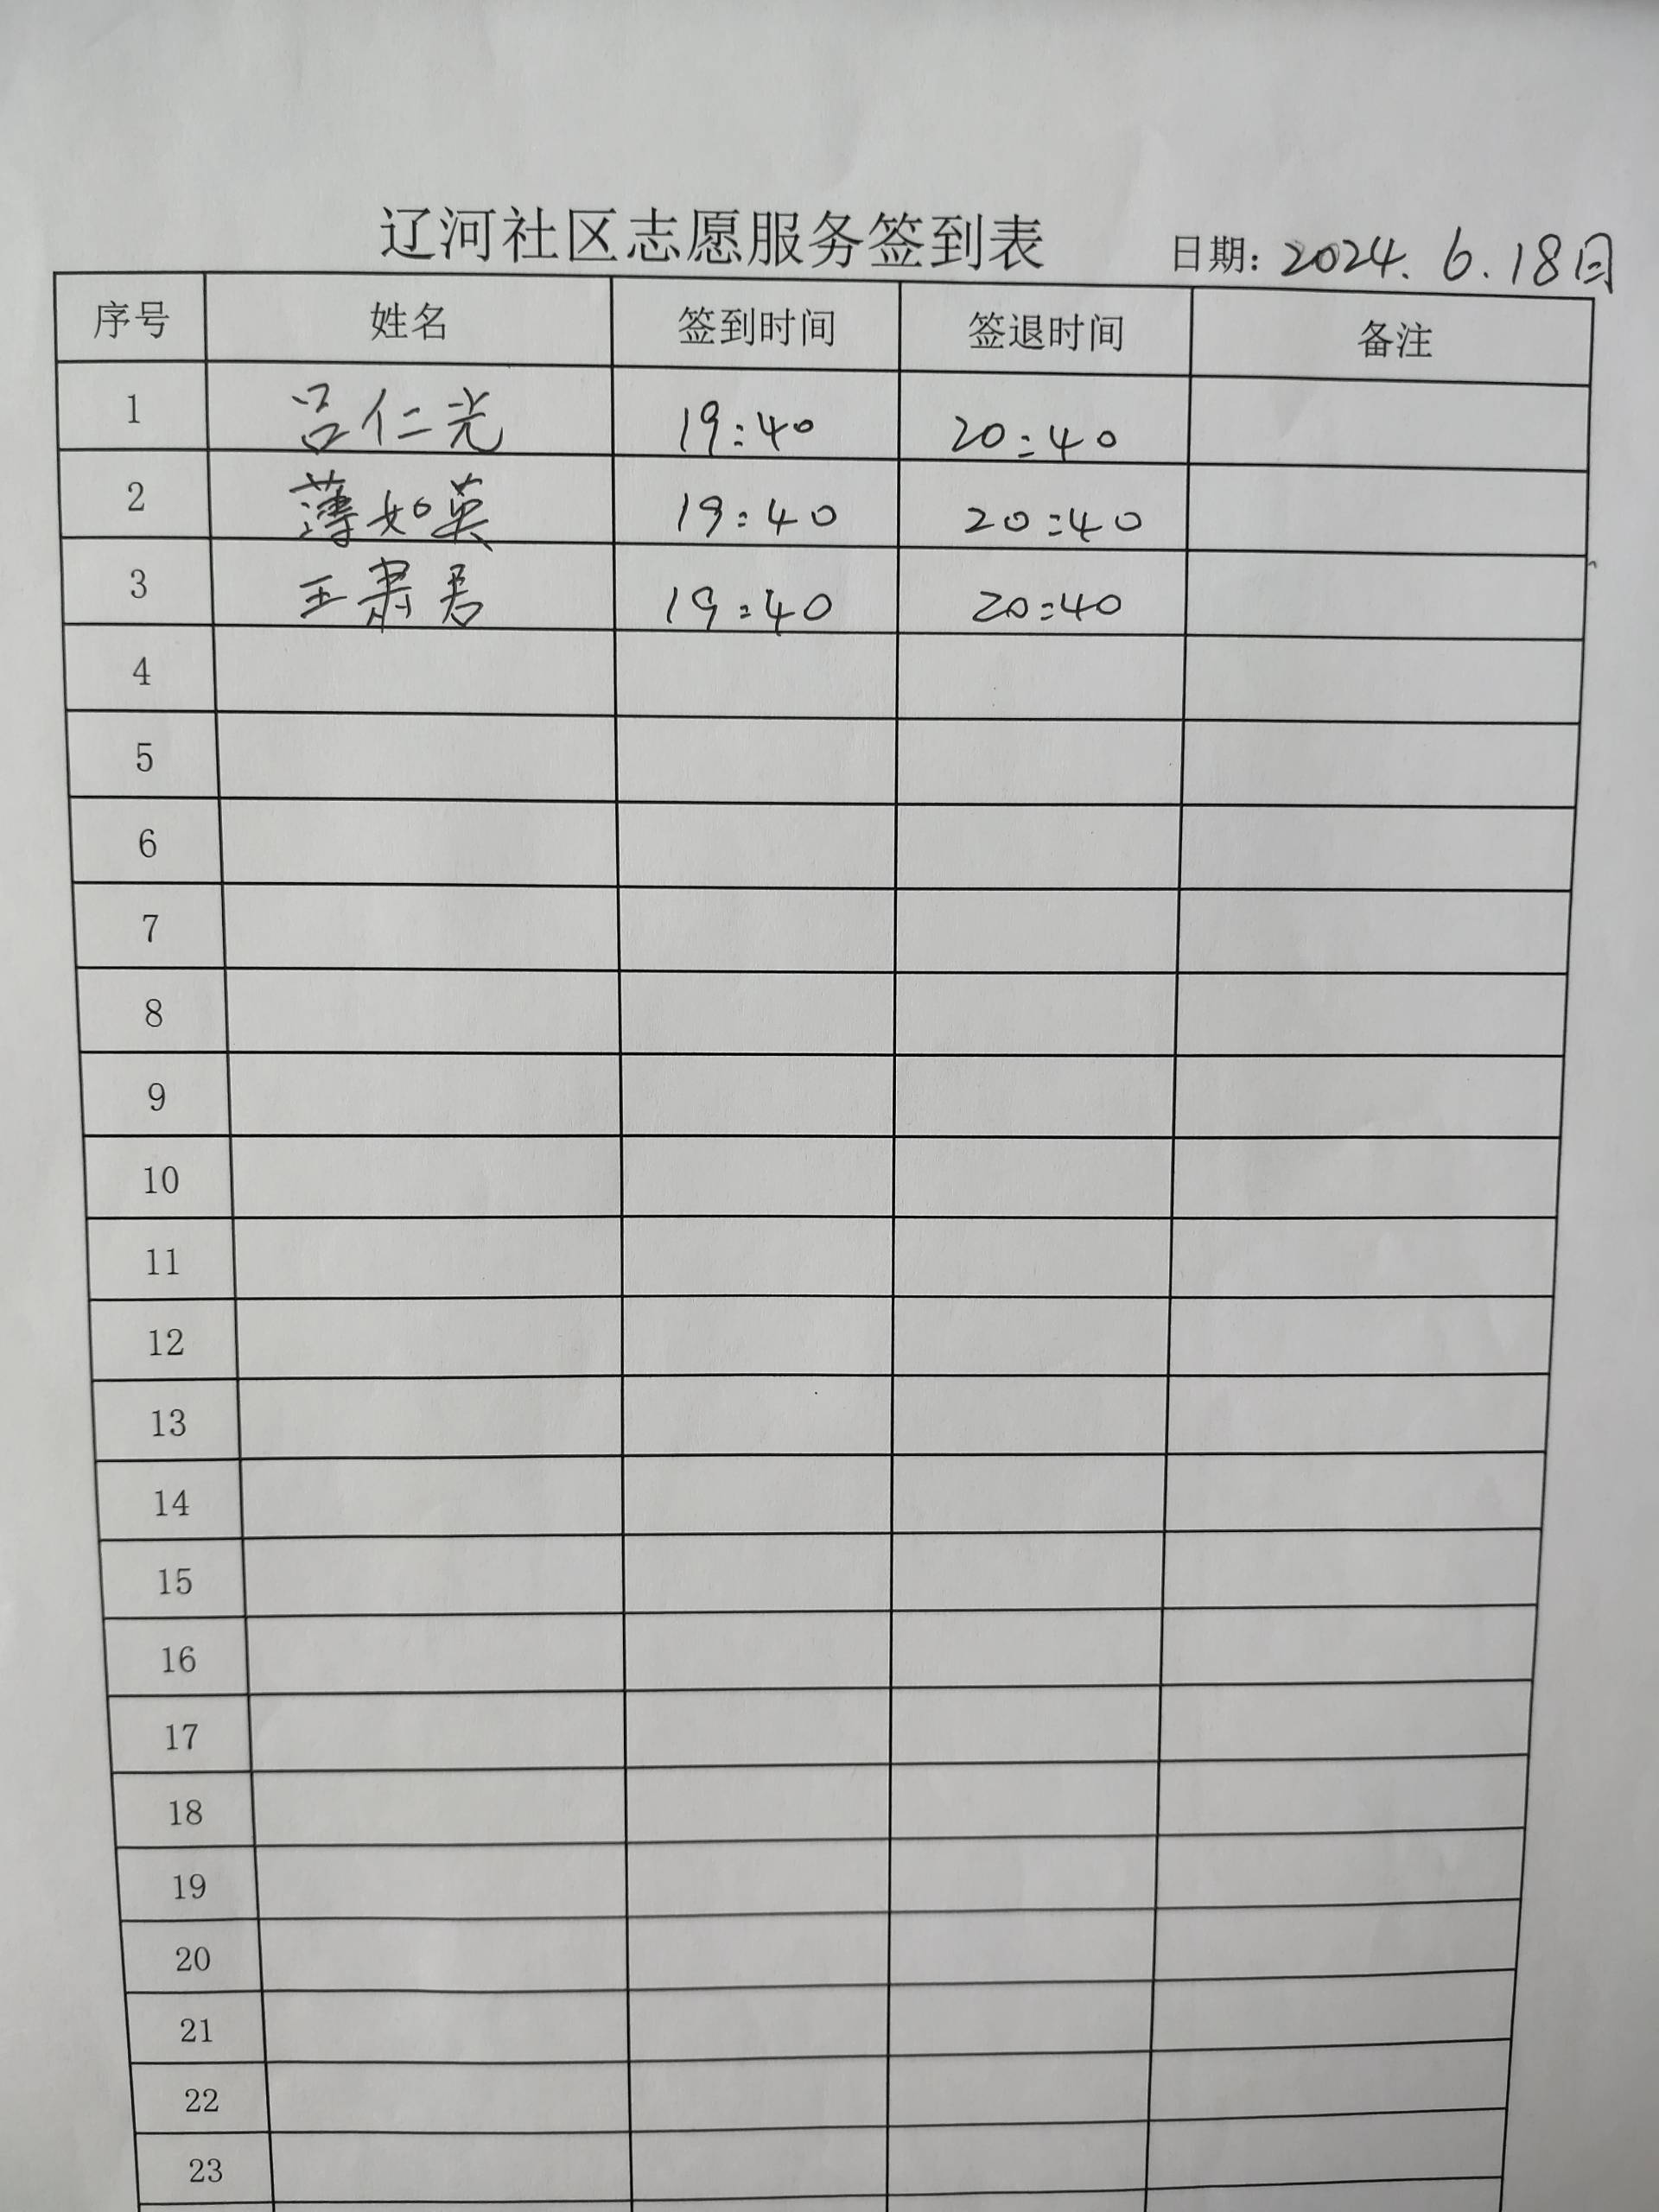 辽河社区志愿服务签到表 日期：2024.6.18日
序号 姓名 签到时间 签退时间 备注
1 吕仁光 19:40 20:40
2 薄如英 19:40 20:40
3 王肃君 19:40 20:40
4
5
6
7
8
9
10
11
12
13
14
15
16
17
18
19
20
21
22
23